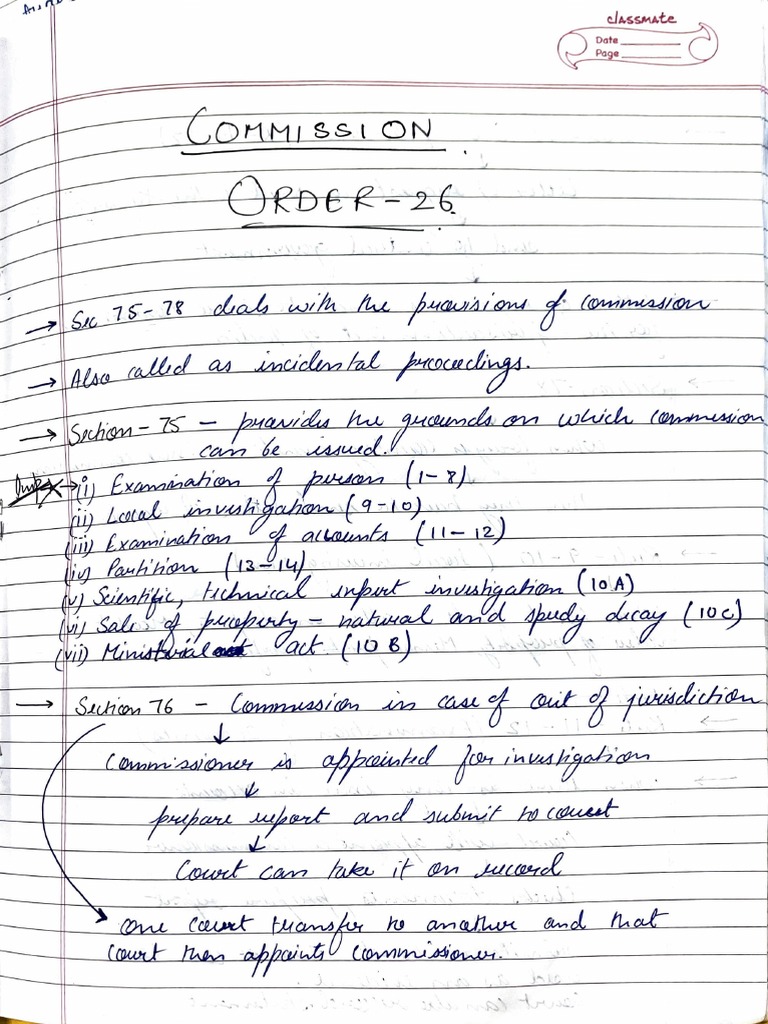 classmate
Date
Page
COMMISSION
ORDER-26.
→ Sec 75-78 deals with the provisions of commission
→ Also called as incidental proceedings.
→ Section-75 - provides the grounds on which commission
can be issued.
→(i) Examination of person (1-8)
(ii) Local investigation (9-10)
(iii) Examination of accounts (11-12)
(iv) Partition (13-14)
(v) Scientific, technical expert investigation (10A)
(vi) Sale of property - natural and speedy decay (10C)
(vii) Ministerial act (10B)
→ Section 76 - Commission in case of out of jurisdiction
↓
Commissioner is appointed for investigation
↓
prepare report and submit to court
↓
Court can take it on record
one court transfer to another and that
court then appoints commissioner.